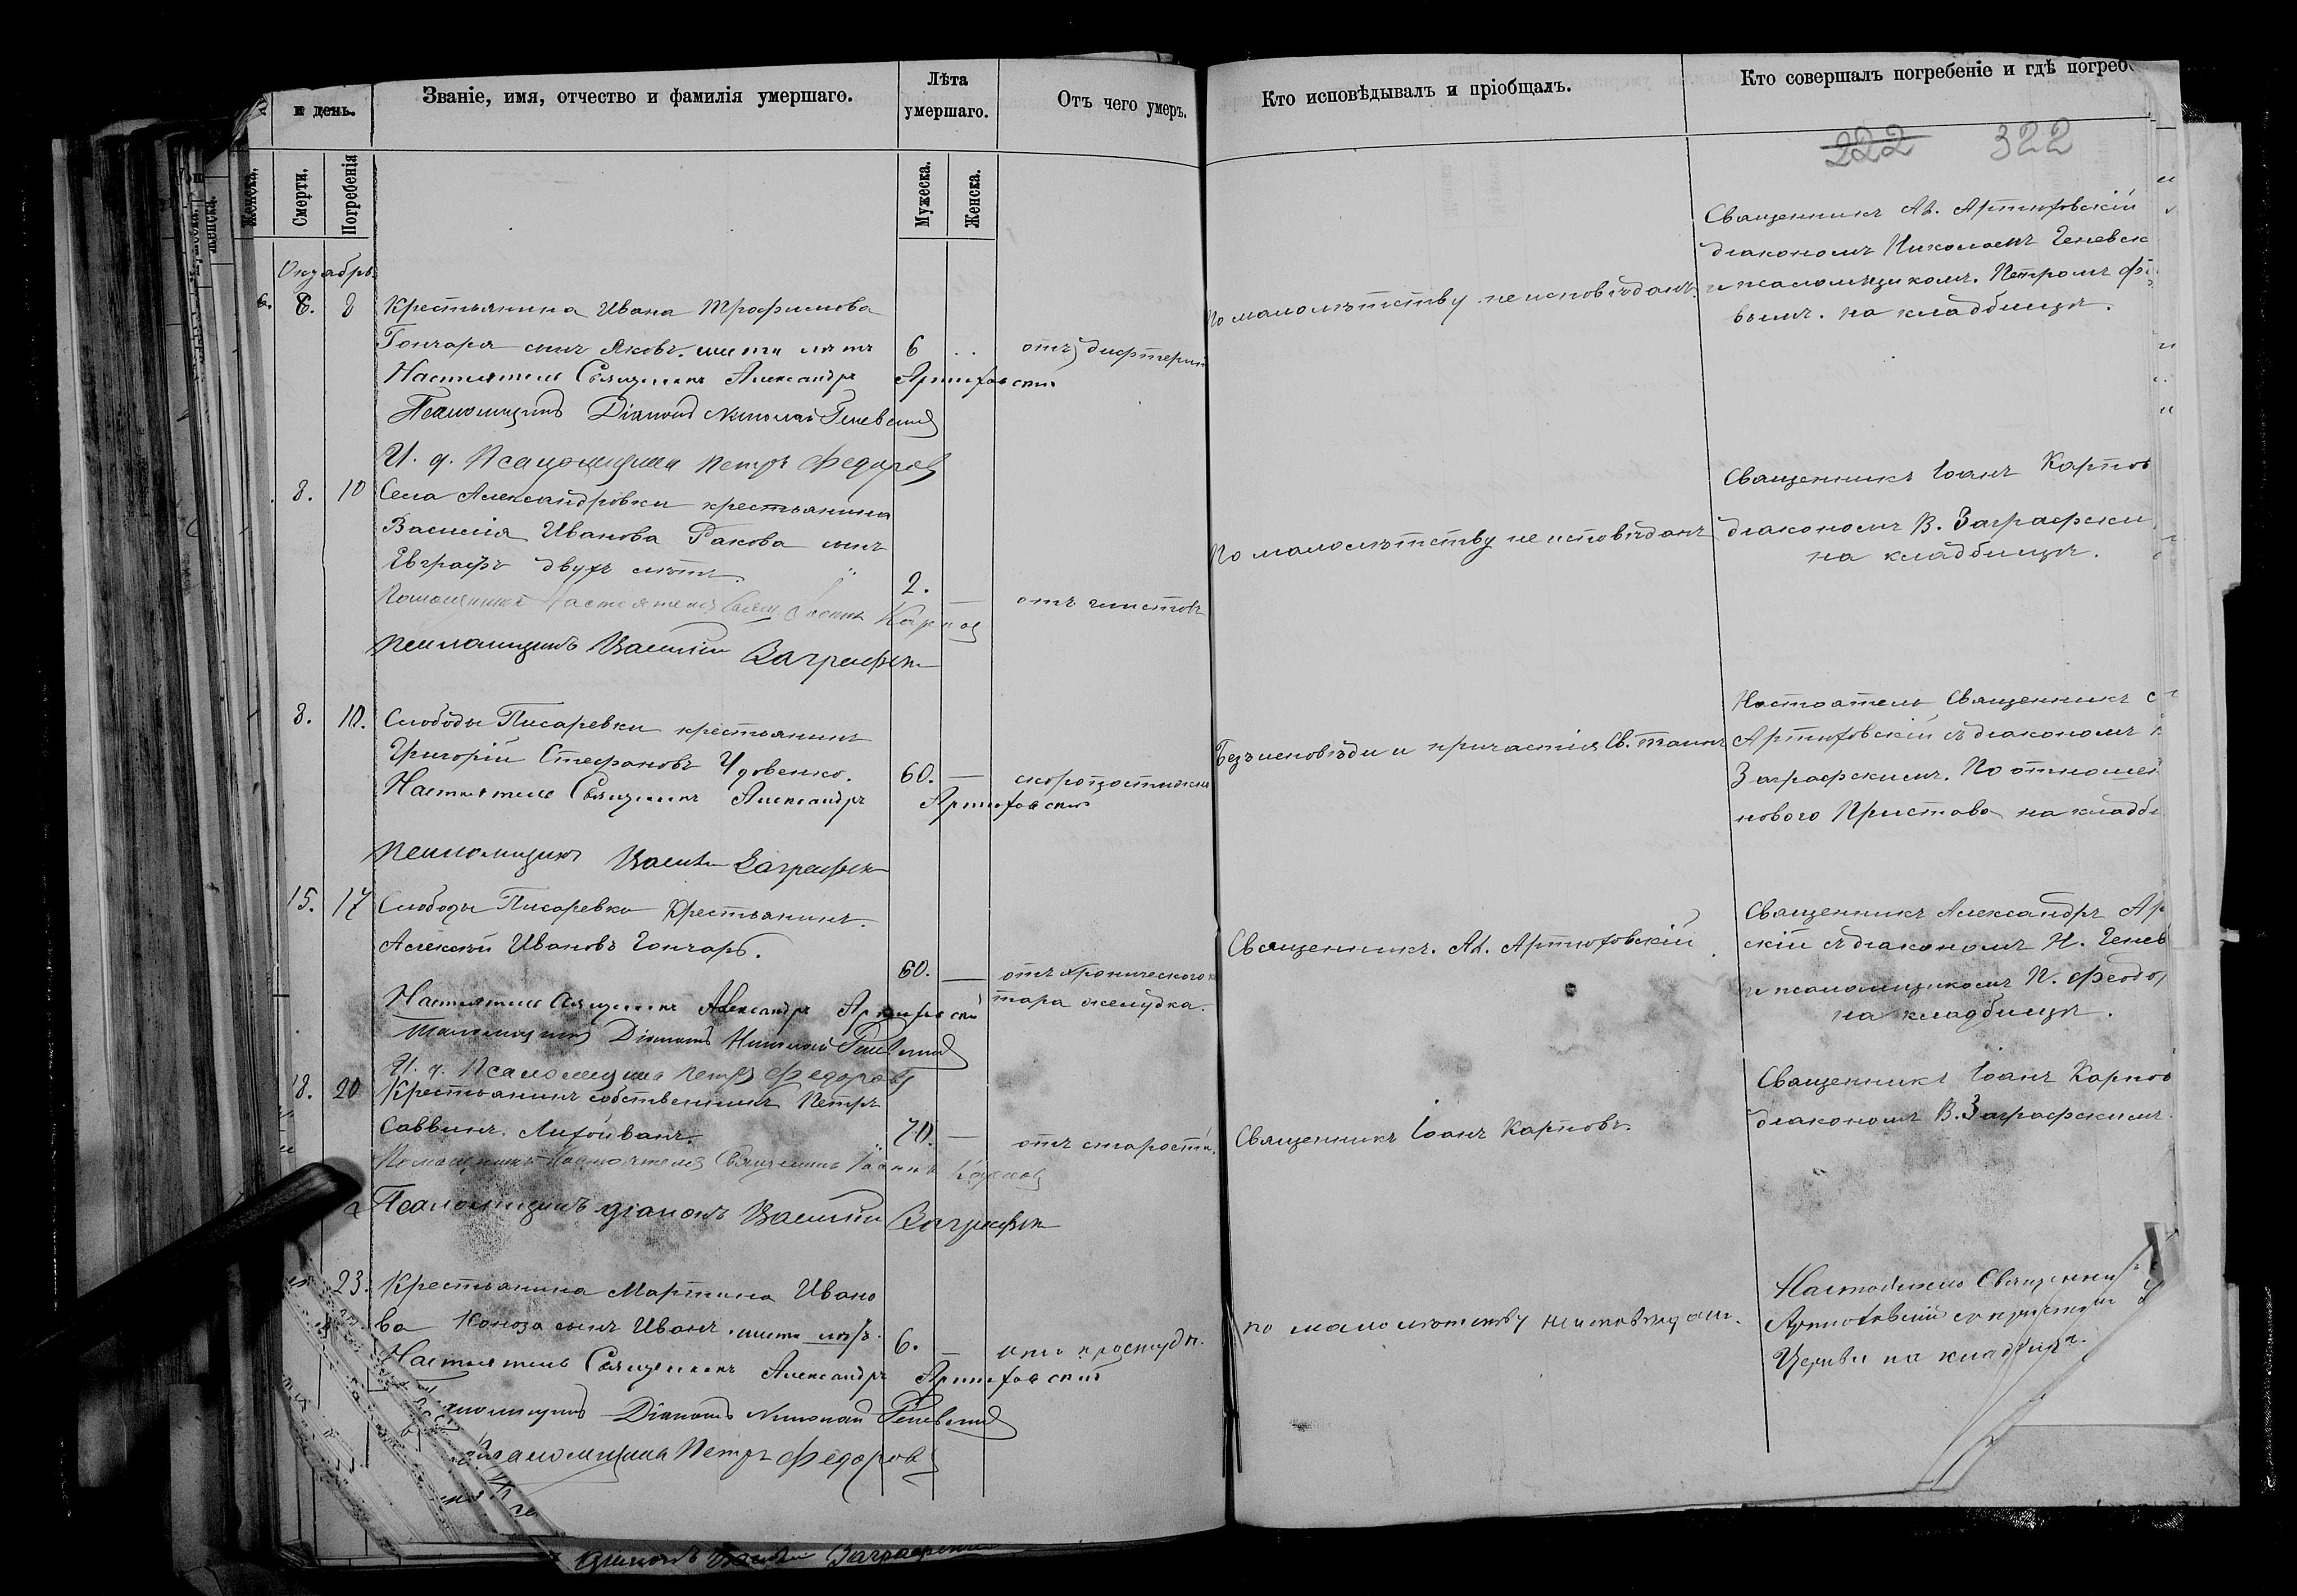 и день.
Званіе, имя, отчество и фамилія умершаго.
Лѣта умершаго.
Отъ чего умеръ.
Кто исповѣдывалъ и пріобщалъ.
Кто совершалъ погребеніе и гдѣ погреб
Женска.
Смерти.
Погребенія
Мужеска.
Женска.
222 322
Октябрь
6. 8
Крестьянина Ивана Трофимова
Гончаря сынъ Яковъ. шести лѣтъ
6
отъ дифтерии
По малолѣтству не исповѣданъ.
Священникъ Ал. Артюховскій
діакономъ Николаемъ Геневск
и псаломщикомъ. Петромъ
вымъ. на кладбищѣ.
Настоятель Священникъ Александръ Артюховскій
Псаломщикъ Діаконъ Николай Геневскій
И. д. Псаломщика Петръ Федоровъ
8. 10
Села Александровки крестьянина
Василія Иванова Ракова сынъ
Евграфъ двухъ лѣтъ.
2.
отъ глистовъ
По малолѣтству не исповѣданъ
Священникъ Іоанъ Карпов
діакономъ В. Заграфски
на кладбищѣ.
Помощникъ Настоятеля Свящ. Іоаннъ Карпов
Псаломщикъ Василій Заграфск
8. 10.
Слободы Писаревки крестьянинъ
Григорій Стефановъ Удовенко.
60.
скоропостижно
Безъ исповѣди и причастія Св. таинъ
Настоятель Священникъ
Артюховскій съ діакономъ
Заграфскимъ. По отношен
нового Пристава на кладб
Настоятель Священникъ Александръ Артюховскій
Псаломщикъ Василій Заграфск
15. 17
Слободы Писаревки Крестьянинъ
Алексѣй Ивановъ Гончарь.
60.
отъ хронического ка
тара желудка.
Священникъ. Ал. Артюховскій
Священникъ Александръ Ар
скій съ діакономъ Н. Генев
и псаломщикомъ П. Феодо
на кладбищѣ.
Настоятель Священникъ Александръ Артюховскій
Псаломщикъ Діаконъ Николай Геневскій
И. д. Псаломщика Петръ Федоровъ
18. 20
Крестьянинъ собственникъ Петръ
Саввинъ. Лихойванъ.
70.
отъ старости.
Священникъ Іоанъ Карповъ.
Священникъ Іоанъ Карпов
діакономъ В. Заграфскимъ.
Помощникъ Настоятеля Священникъ Іоаннъ Карпов
Псаломщикъ діаконъ Василій Заграфск
23.
Крестьянина Мартина Ивано
ва Коноза сынъ Иванъ. шести лѣтъ.
6.
отъ простуды.
по малолѣтству не исповѣданъ.
Настоятель Священник
Артюховскій съ причтом
Церкви на кладбищѣ.
Настоятель Священникъ Александръ Артюховскій
Діаконъ Николай Геневскій
Псаломщика Петръ Федоровъ
діаконъ Василій Заграфскій